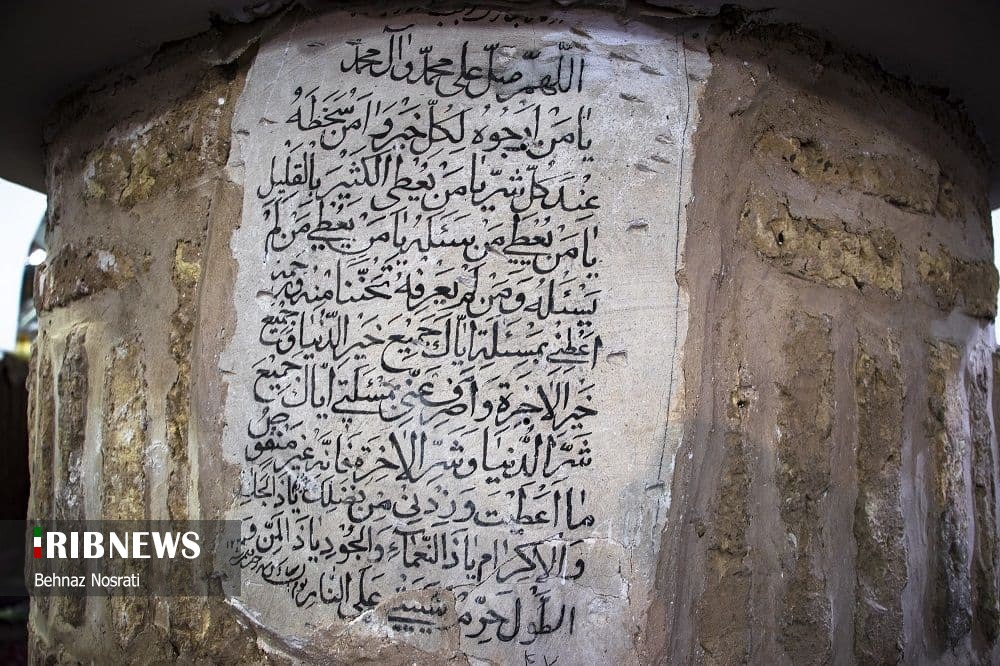 اللهم صل على محمد وآل محمد
يا من ارجوه لكل خير وآمن سخطه
عند كل شر يا من يعطى الكثير بالقليل
يا من يعطى من سئله يا من يعطى من لم
يسئله ومن لم يعرفه تحننا منه ورحمة
اعطنى بمسئلتى اياك جميع خير الدنيا وجميع
خير الاخرة واصرف عنى بمسئلتى اياك جميع
شر الدنيا وشر الاخرة فانه غير منقوص
ما اعطيت وزدنى من فضلك يا ذا الجلال
والاكرام يا ذا النعماء والجود يا ذا المن و
الطول حرم شيبتى على النار
IRIBNEWS
Behnaz Nosrati